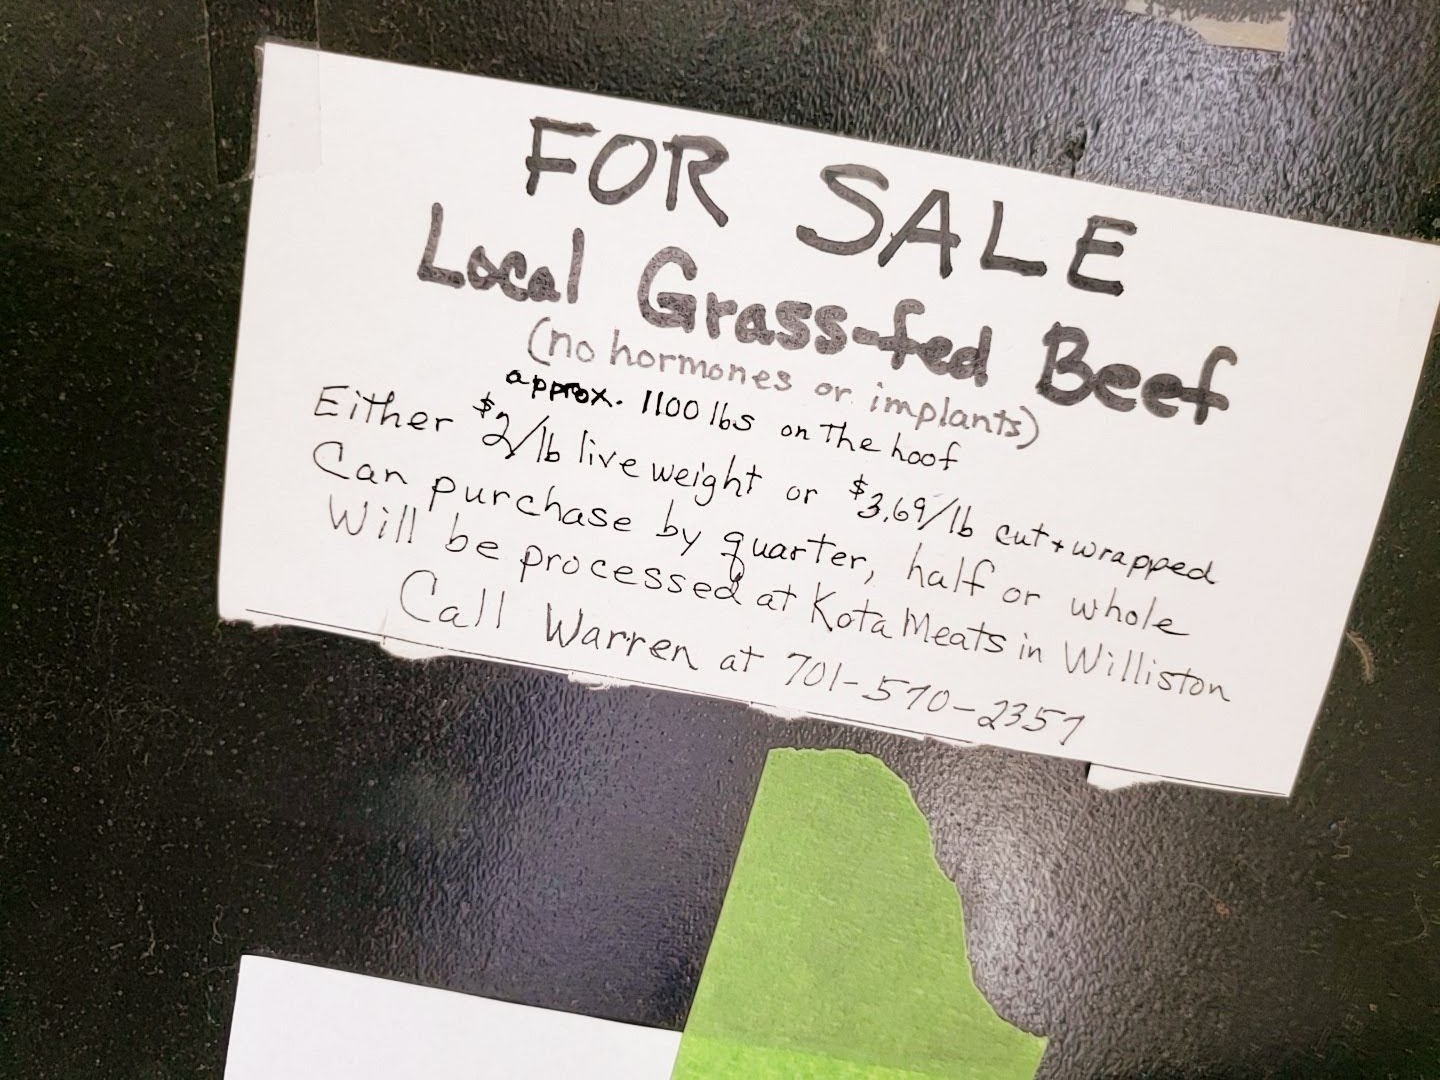 FOR SALE
Local Grass-fed Beef
(no hormones or implants)
approx. 1100 lbs on the hoof
Either $2/lb live weight or $3.69/lb cut + wrapped
Can purchase by quarter, half or whole
Will be processed at Kota Meats in Williston
Call Warren at 701-570-2357